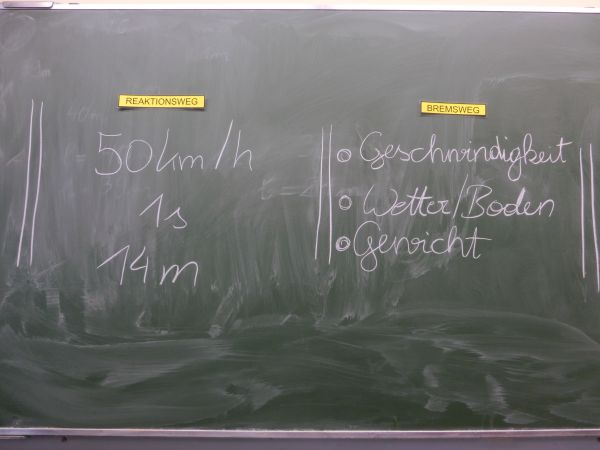 REAKTIONSWEG
50km/h
1s
14m
BREMSWEG
Geschwindigkeit
Wetter/Boden
Gewicht